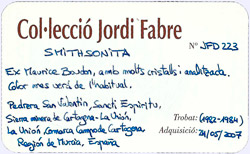 Col·lecció Jordi Fabre
Nº JFD 223
SMITHSONITA
Ex Maurice Boudon, amb molts cristalls i analitzada.
Color mes verd de l'habitual.
Pedrera San Valentín, Sancti Espíritu,
Sierra minera de Cartagena-La Unión,
La Unión, Comarca Campo de Cartagena,
Región de Murcia, España
Trobat: (1982-1984)
Adquisició: 24/05/2007